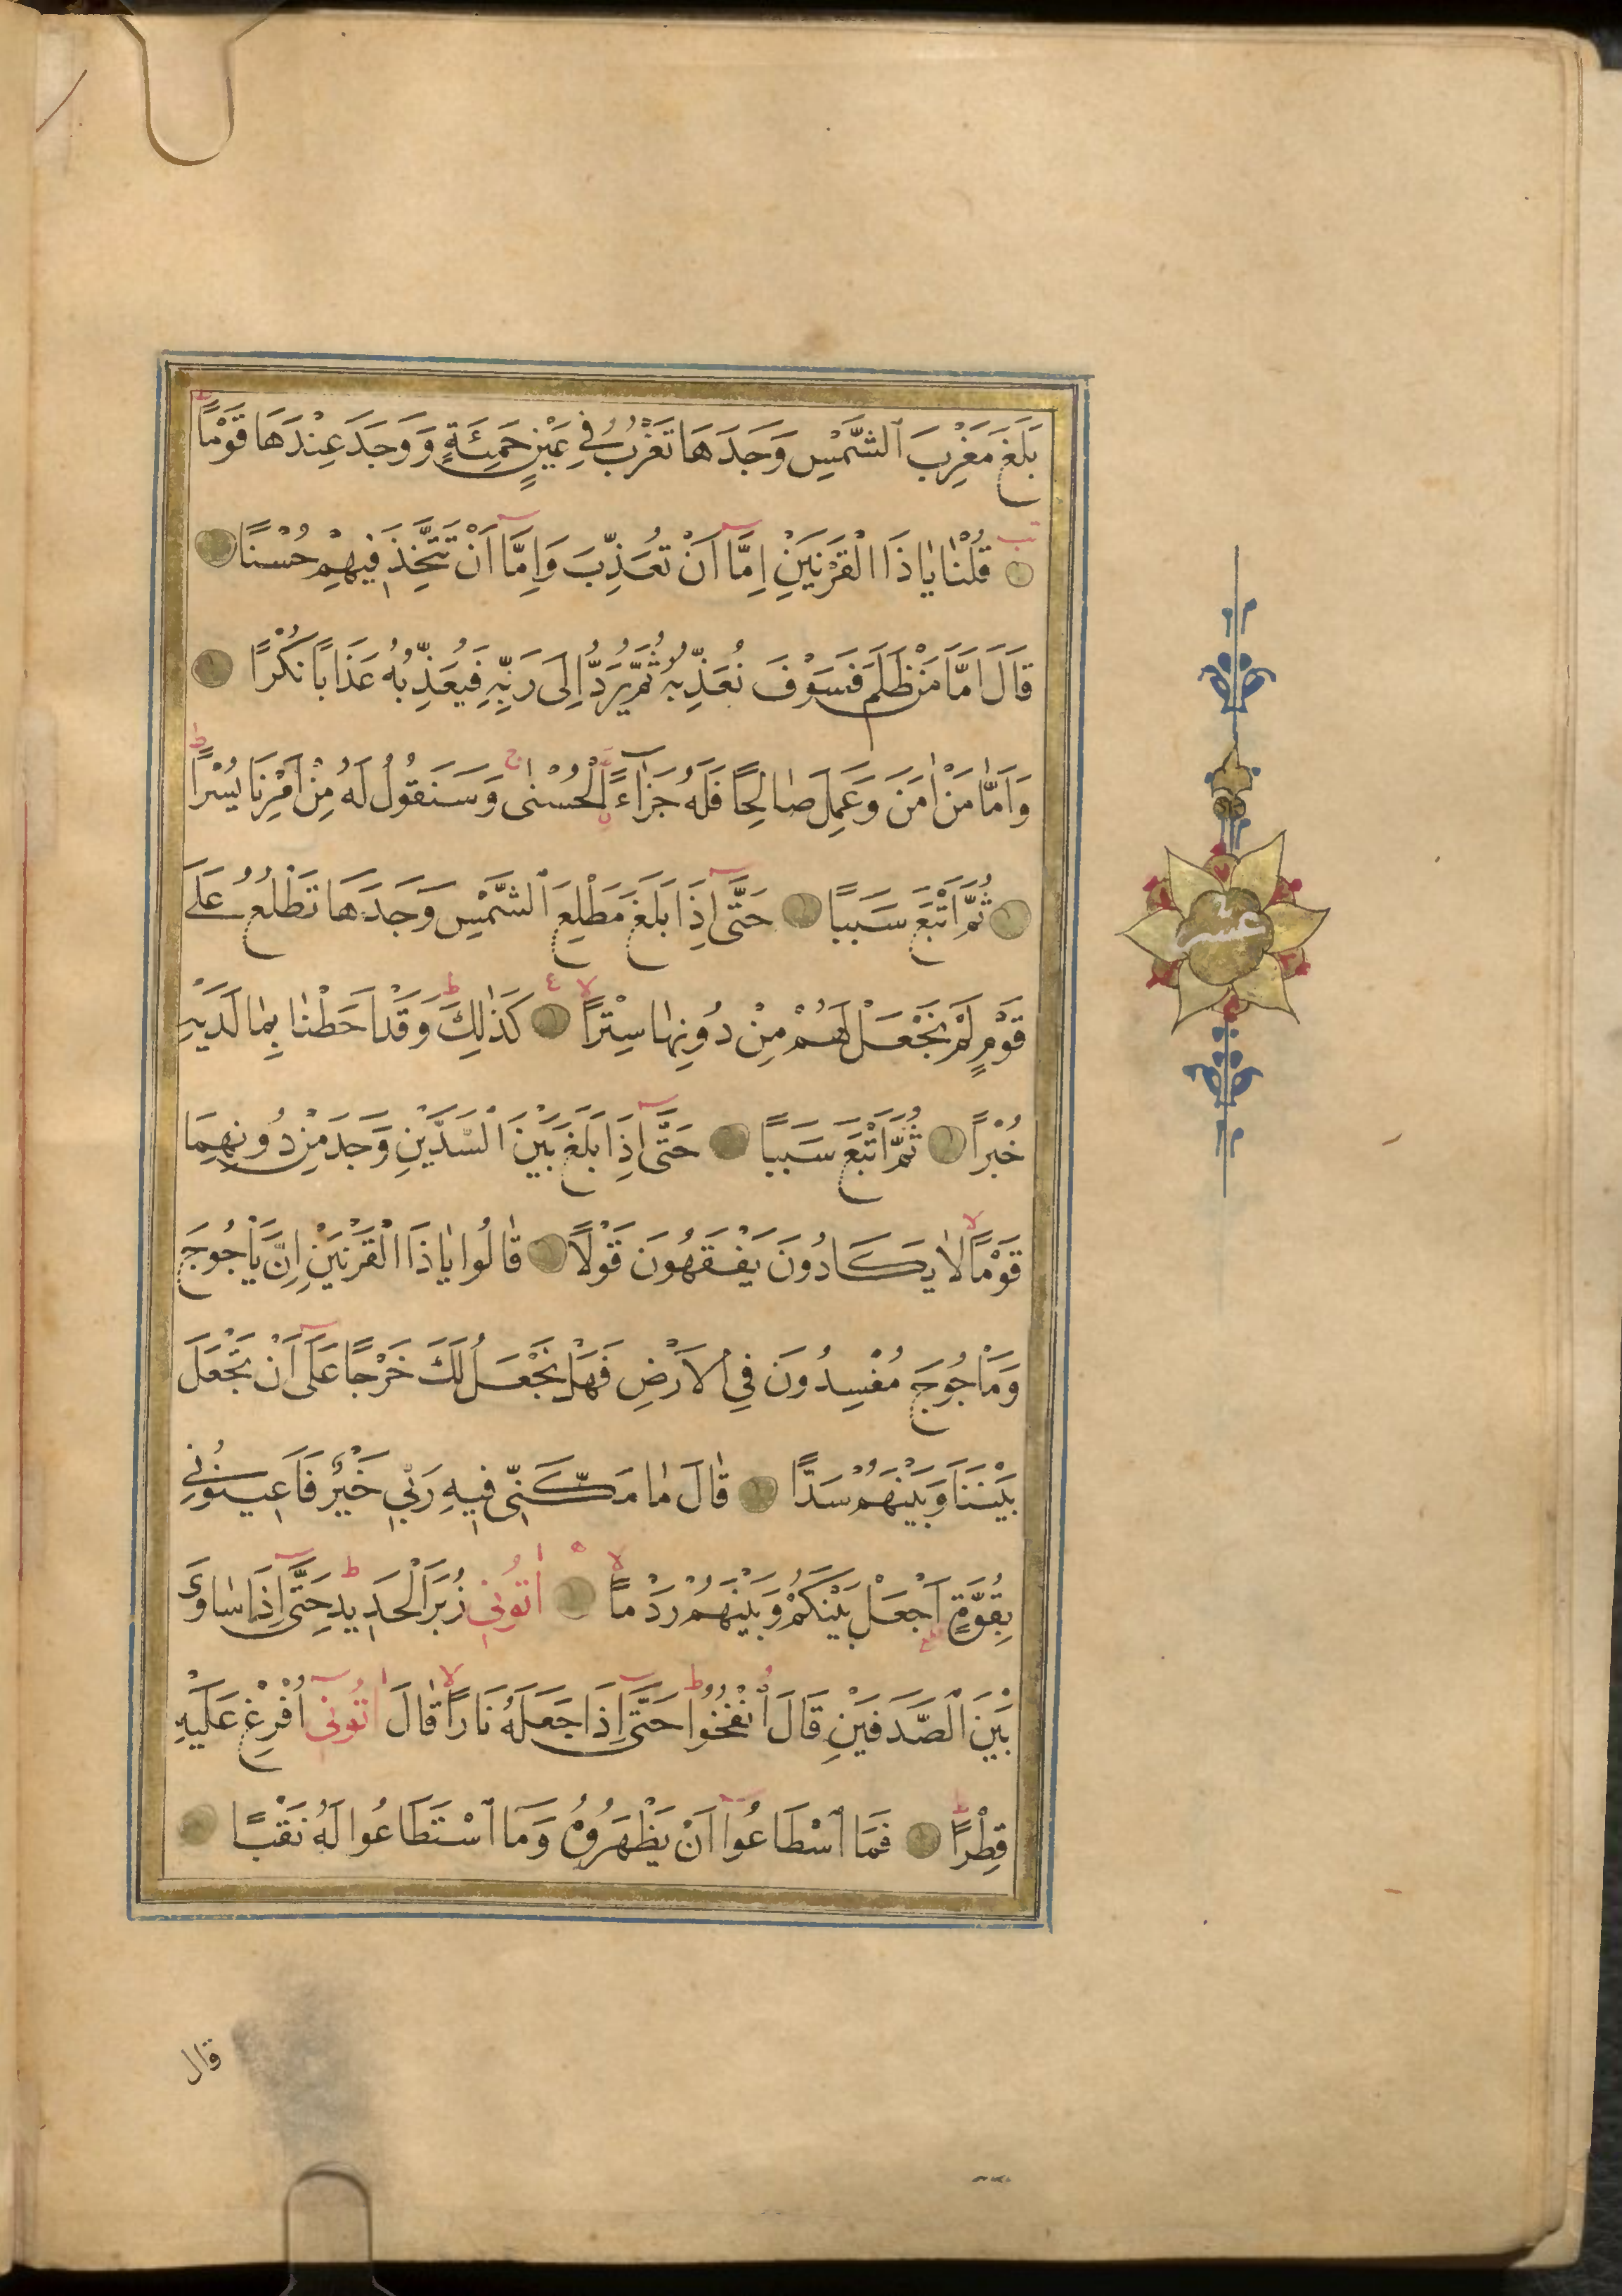 بَلَغَ مَغْرِبَ ٱلشَّمْسِ وَجَدَهَا تَغْرُبُ فِي عَيْنٍ حَمِئَةٍ وَوَجَدَ عِنْدَهَا قَوْمًا
قُلْنَا يَا ذَا الْقَرْنَيْنِ اِمَّا اَنْ تُعَذِّبَ وَاِمَّا اَنْ تَتَّخِذَ فِيهِمْ حُسْنًا
قَالَ اَمَّا مَنْ ظَلَمَ فَسَوْفَ نُعَذِّبُهُ ثُمَّ يُرَدُّ اِلَى رَبِّهِ فَيُعَذِّبُهُ عَذَابًا نُكْرًا
وَاَمَّا مَنْ اٰمَنَ وَعَمِلَ صَالِحًا فَلَهُ جَزَآءً الْحُسْنٰى وَسَنَقُولُ لَهُ مِنْ اَمْرِنَا يُسْرًا
ثُمَّ اَتْبَعَ سَبَبًا حَتَّى اِذَا بَلَغَ مَطْلِعَ ٱلشَّمْسِ وَجَدَهَا تَطْلُعُ عَلَى
قَوْمٍ لَمْ نَجْعَلْ لَهُمْ مِنْ دُونِهَا سِتْرًا كَذٰلِكَ وَقَدْ اَحَطْنَا بِمَا لَدَيْهِ
خُبْرًا ثُمَّ اَتْبَعَ سَبَبًا حَتَّى اِذَا بَلَغَ بَيْنَ السَّدَّيْنِ وَجَدَ مِنْ دُونِهِمَا
قَوْمًا لَا يَكَادُونَ يَفْقَهُونَ قَوْلًا قَالُوا يَا ذَا الْقَرْنَيْنِ اِنَّ يَاْجُوجَ
وَمَاْجُوجَ مُفْسِدُونَ فِي الْاَرْضِ فَهَلْ نَجْعَلُ لَكَ خَرْجًا عَلَى اَنْ تَجْعَلَ
بَيْنَنَا وَبَيْنَهُمْ سَدًّا قَالَ مَا مَكَّنِّي فِيهِ رَبِّي خَيْرٌ فَاَعِينُونِي
بِقُوَّةٍ اَجْعَلْ بَيْنَكُمْ وَبَيْنَهُمْ رَدْمًا اٰتُونِي زُبَرَ الْحَدِيدِ حَتَّى اِذَا سَاوَى
بَيْنَ ٱلصَّدَفَيْنِ قَالَ ٱنْفُخُوا حَتَّى اِذَا جَعَلَهُ نَارًا قَالَ اٰتُونِي اُفْرِغْ عَلَيْهِ
قِطْرًا فَمَا ٱسْطَاعُوا اَنْ يَظْهَرُوهُ وَمَا ٱسْتَطَاعُوا لَهُ نَقْبًا
عشر
قال